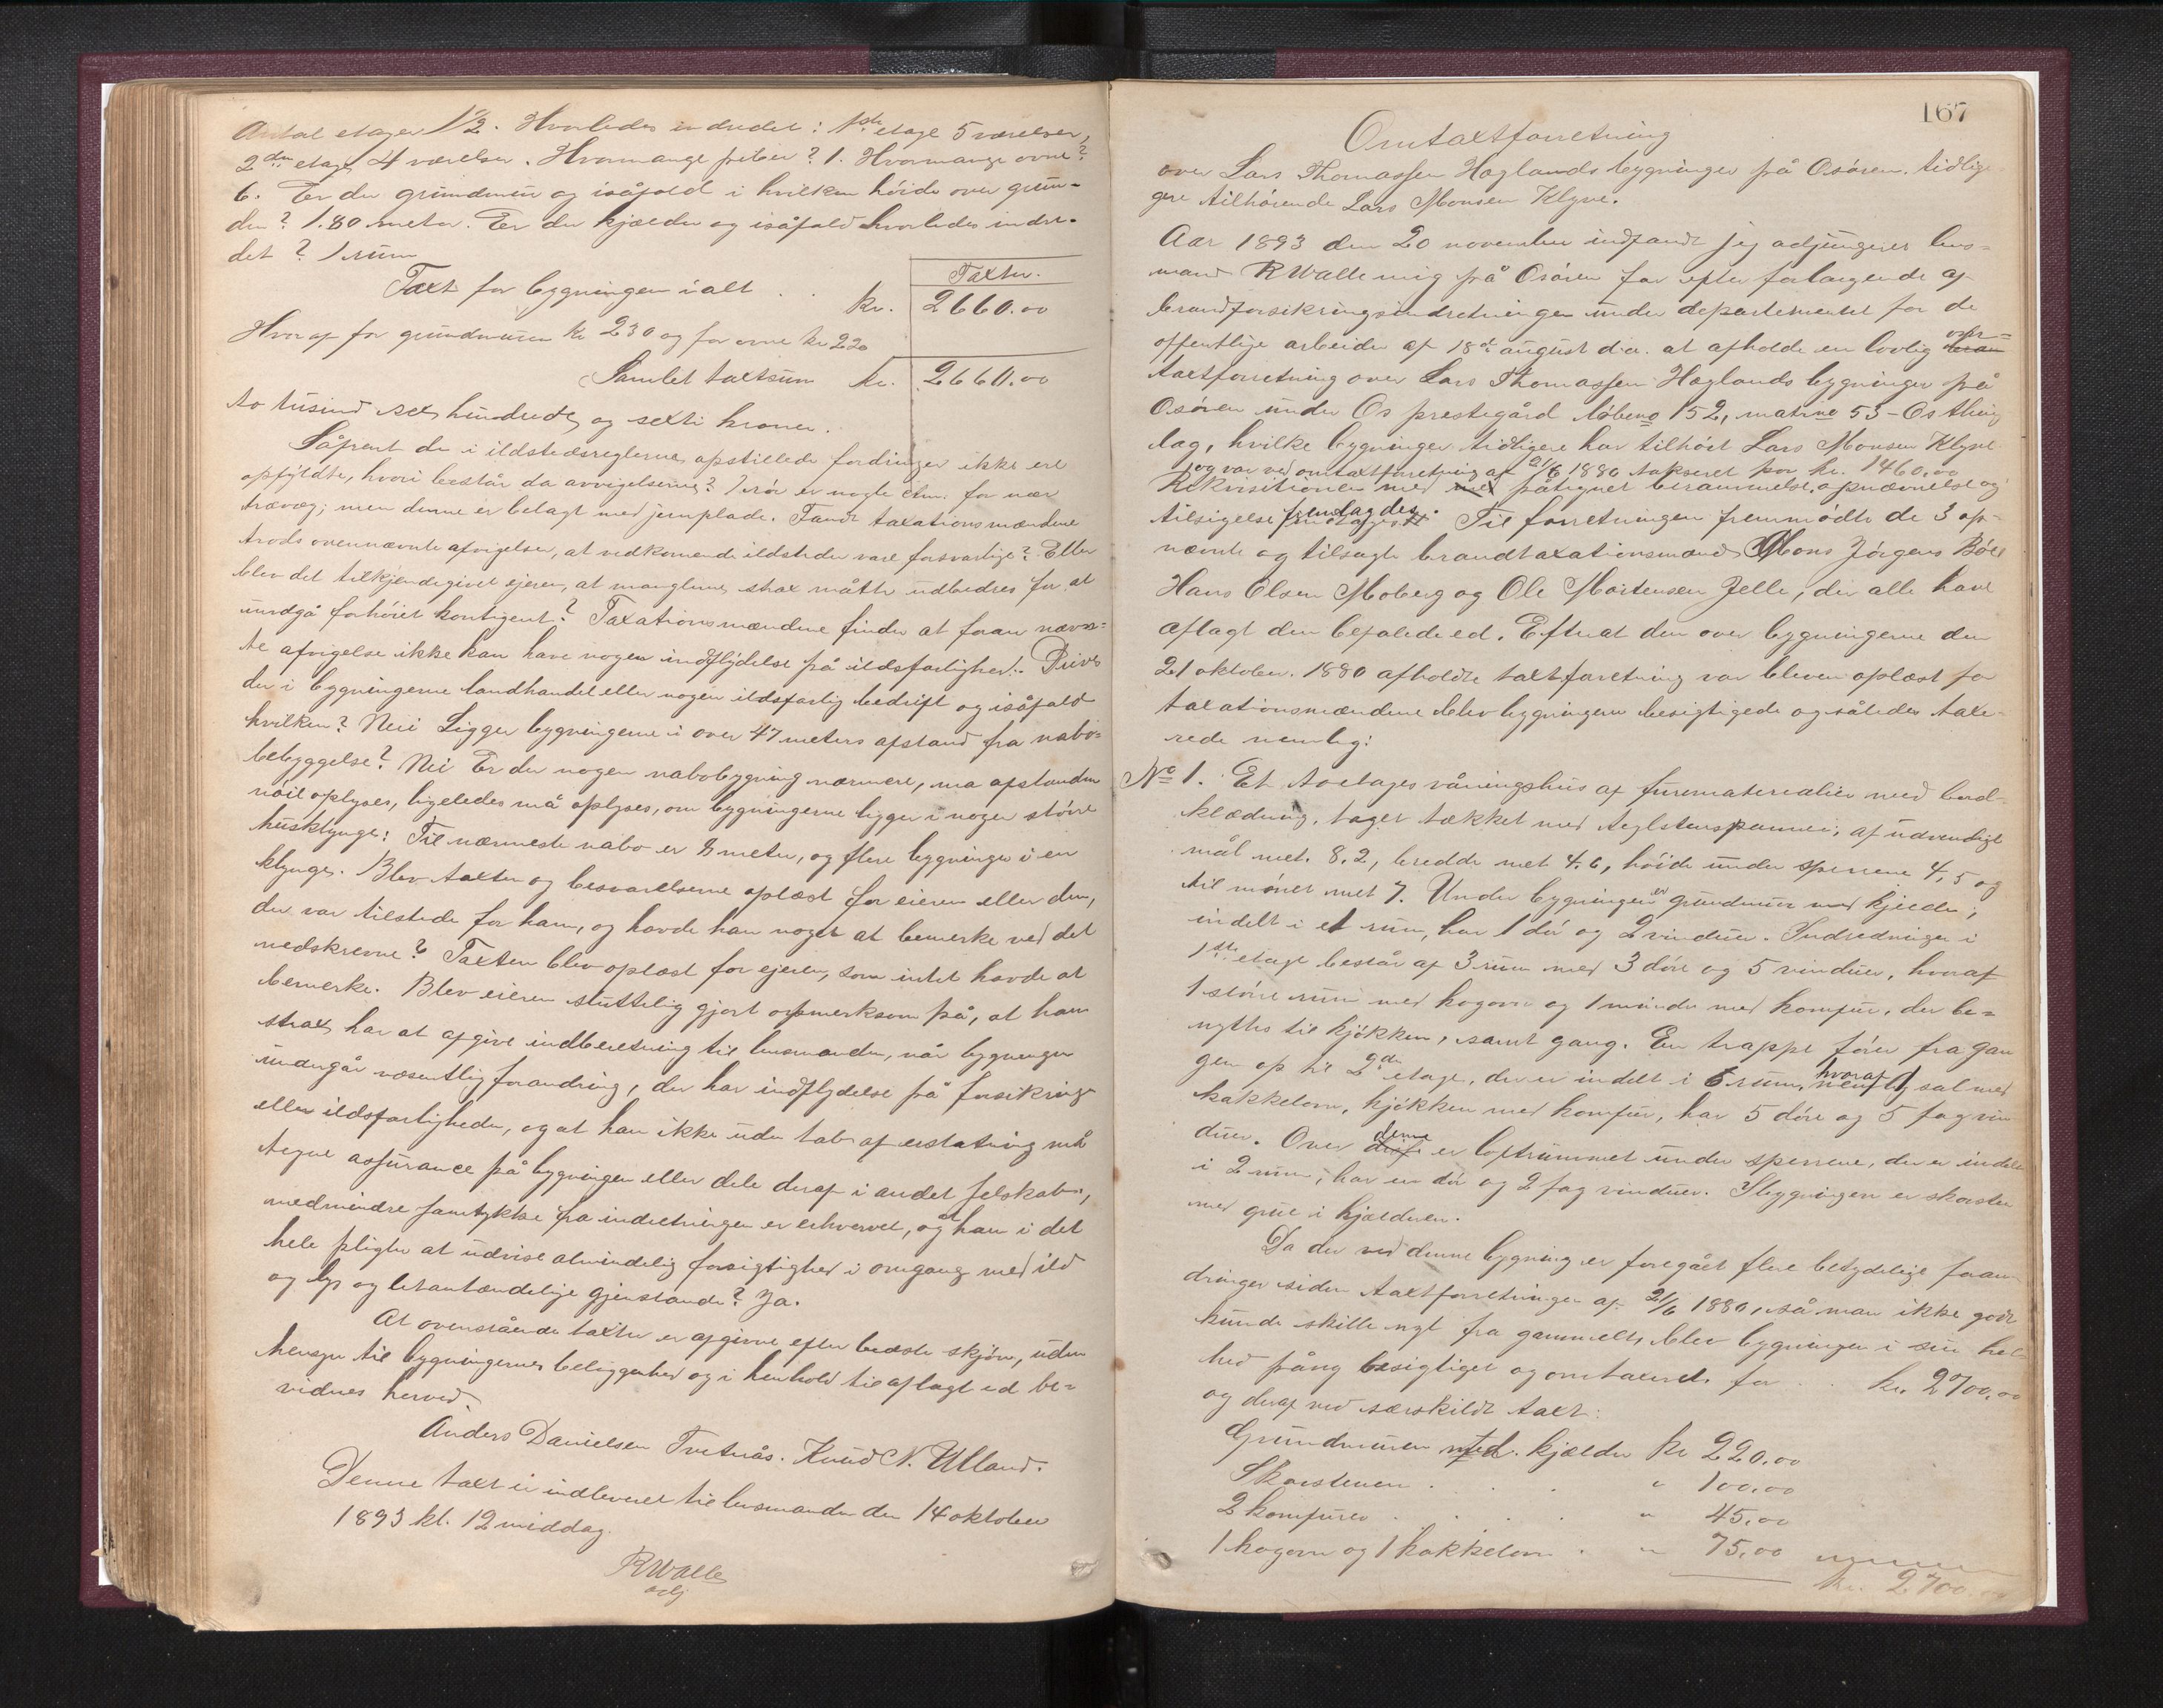 Antal etager 1 1/2. Hvorledes indredet: 1ste etage 5 værelser,
2den etage 4 værelser. Hvormange piber? 1. Hvormange ovne?
6. Er der grundmur og isåfald i hvilken høide over grun-
den? 1.80 meter. Er der kjælder og isåfald hvorledes indre-
det? 1 rum
Taxter.
Taxt for bygningen ialt . . kr. 2660.00
Hvoraf for grundmuren kr 230 og for ovne kr 220
Samlet taxtsum kr. 2660.00
to tusind sex hundrede og sexti kroner.
Såfremt de i ildstedsreglerne opstillede fordringer ikke ere
opfyldte, hvori består da avvigelserne? 1 rør er nogle ctm. for nær
trævæg; men denne er belagt med jernplade. Fandt taxationsmændene
trods ovennævnte afvigelser, at vedkommende ildsteder vare forsvarlige? Eller
blev det tilkjendegivet ejeren, at manglerne strax måtte udbedres for at
undgå forhøiet kontigent? Taxationsmændene finder at foran nævn-
te afvigelse ikke kan have nogen indflydelse på ildsfarlighed. Drives
der i bygningerne landhandel eller nogen ildsfarlig bedrift og isåfald
hvilken? Nei Ligger bygningerne i over 47 meters afstand fra nabo-
bebyggelse? Nei Er der nogen nabobygning nærmere, ma afstanden
nøie oplyses, ligeledes må oplyses, om bygningerne ligger i nogen større
husklynge: Til nærmeste nabo er 8 meter, og flere bygninger i en
klynge. Blev taxten og besvarelserne oplæst for eieren eller den,
der var tilstede for ham, og havde han noget at bemerke ved det
nedskrevne? Taxten blev oplæst for ejeren, som intet havde at
bemerke. Blev eieren sluttelig gjort opmerksom på, at han
strax har at afgive indberetning til lensmanden, når bygningen
undergår væsentlig forandring, der har indflydelse på forsikring
eller ildsfarligheden, og at han ikke uden tab af erstatning må
tegne assurance på bygningen eller dele deraf i andet selskab,
medmindre samtykke fra indretningen er erhvervet, og at han i det
hele pligter at udvise almindelig forsigtighed i omgang med ild
og lys og letantændelige gjenstande? Ja.
At ovenstående taxter er afgivne efter bedste skjøn, uden
hensyn til bygningernes beliggenhed og i henhold til aflagt ed be-
vidnes herved.
Anders Danielsen Tveterås. Knud N. Ulland.
Denne taxt er indleveret til lensmanden den 14 oktober
1893 kl. 12 middag.
R Walle
adj
167
Omtaxtforretning
over Lars Thomassen Hauglands bygninger på Osøren, tidlig
gere tilhørende Lars Monsen Klyve.
Aar 1893 den 20 november indfandt jeg adjungeret lens-
mand R Walle mig på Osøren for efter forlangende af
brandforsikringsindretningen under departementet for de
offentlige arbeider af 18de august d.a. at afholde en lovlig om-
taxtforretning over Lars Thomassen Hauglands bygninger på
Osøren under Os prestegård løbeno 152, matrno 53 - Os thing
lag, hvilke bygninger tidligere har tilhørt Lars Monsen Klyve
og var ved omtaxtforretning af 21/6 1880 takseret for kr. 1460.00
Rekvisitionen med påtegnet berammelse, opnævnelse og
tilsigelse fremlagdes. Til forretningen fremmødte de 3 op-
nævnte og tilsagte brandtaxationsmænd Mons Jørgens Bøe
Hans Olsen Moberg og Ole Mortensen Jelle, der alle have
aflagt den befalede ed. Efterat den over bygningerne den
21 oktober 1880 afholdte taxtforretning var bleven oplæst for
taxationsmændene blev bygningerne besigtigede og således taxe-
rede nemlig:
No 1. Et toetages våningshus af furematerialier med bord-
klædning, taget tækket med teglstenspanner, af udvendigt
mål met. 8.2, bredde met 4.6, høide under sperrene 4,5 og
til mønet met 7. Under bygningen er grundmur med kjelder,
indelt i et rum, har 1 dør og 2 vinduer. Indredningen i
1ste etage består af 3 rum med 3 døre og 5 vinduer, hvoraf
1 større rum med kogovn og 1 mindre med komfur, der be-
nyttes til kjøkken, samt gang. En trappe fører fra gan
gen op til 2den etage, der er indelt i 6 rum, hvoraf 1 sal med
kakkelovn, kjøkken med komfur, har 5 døre og 5 fag vin
duer. Over denne er loftrummet under sperrene, der er indelt
i 2 rum, har en dør og 2 fag vinduer. I bygningen er skorsten
med grue i kjælderen.
Da der ved denne bygning er foregået flere betydelige foran
dringer siden taxtforretningen af 21/6 1880, så man ikke godt
kunde skille nyt fra gammelt, blev bygningen i sin hel-
hed påny besigtiget og omtaxeret for . . kr. 2700.00
og deraf ved særskildt taxt:
Grundmuren med kjælder kr 220.00
Skorstenen . . . " 100.00
2 komfurer . . . . " 45.00
1 kogovn og 1 kakkelovn . " 75.00
kr. 2700.00